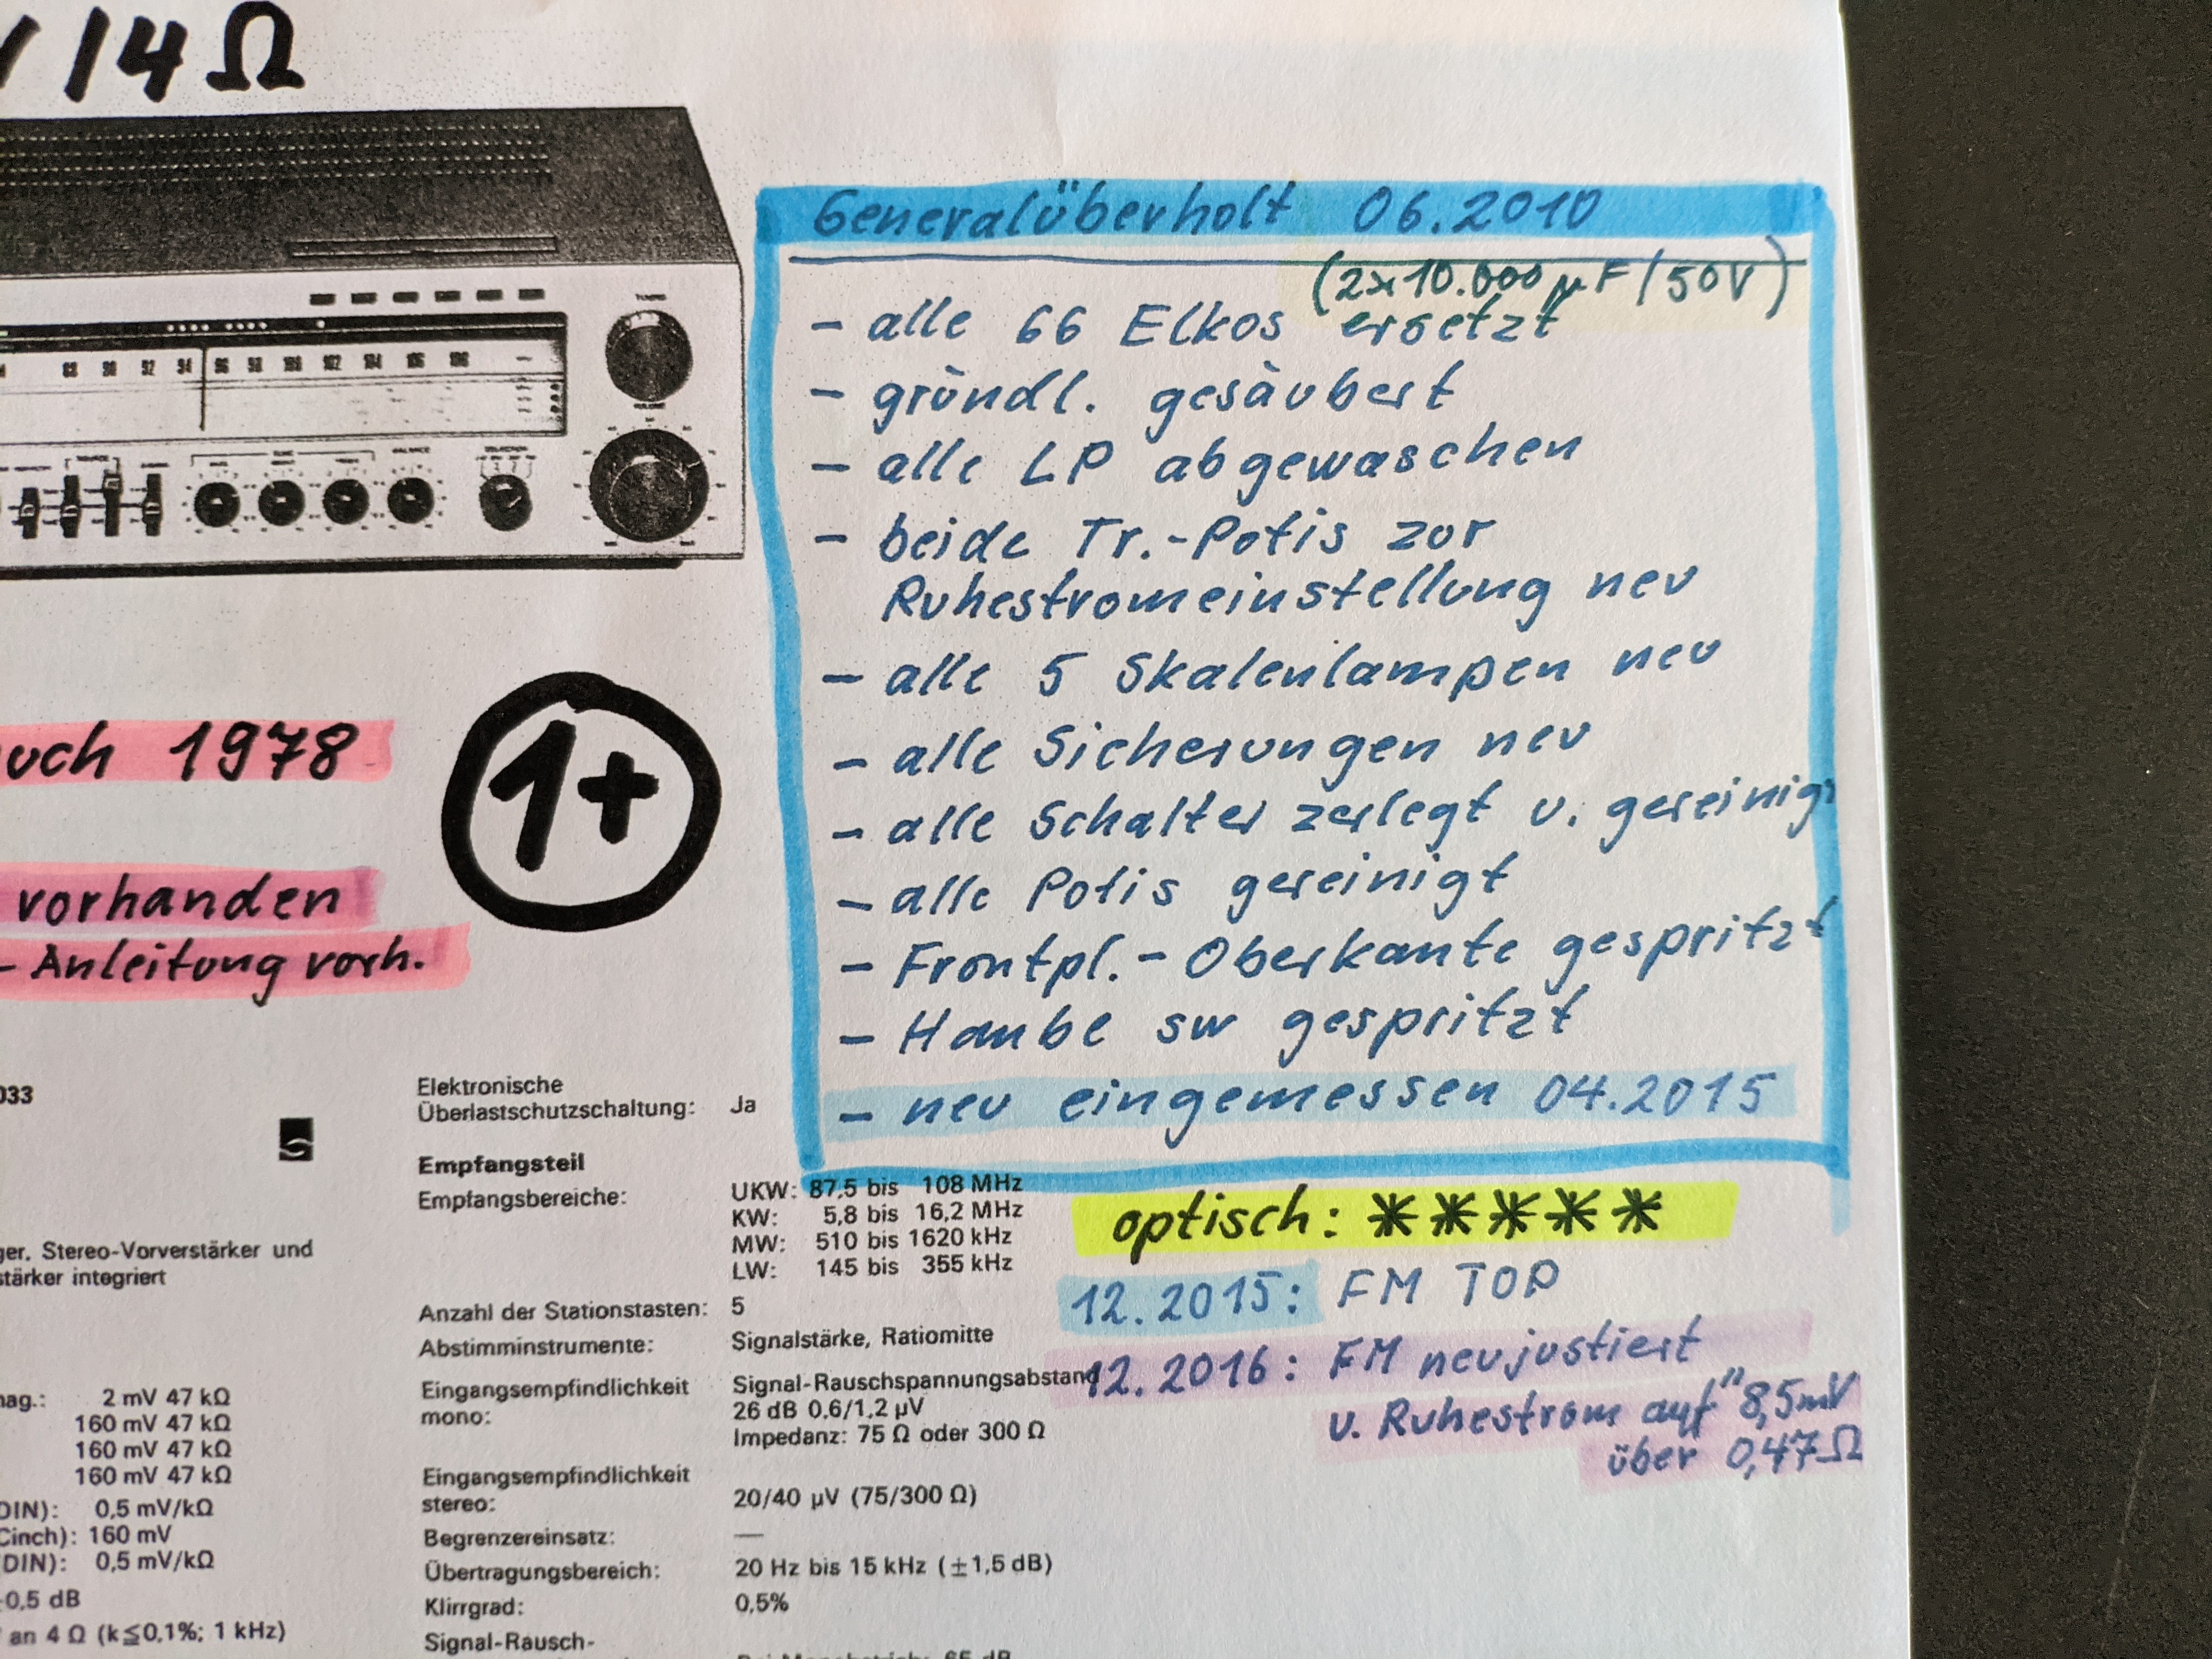 /4 Ω
Generalüberholt 06.2010
(2x10.000 µF/50V)
- alle 66 Elkos ersetzt
- gründl. gesäubert
- alle LP abgewaschen
- beide Tr.-Potis zur
Ruhestromeinstellung neu
- alle 5 Skalenlampen neu
- alle Sicherungen neu
- alle Schalter zerlegt u. gereinigt
- alle Potis gereinigt
- Frontpl.- Oberkante gespritzt
- Haube sw gespritzt
- neu eingemessen 04.2015
88 90 92 94 96 98 100 102 104 106 108
1978
1+
vorhanden
- Anleitung vorh.
optisch: *****
12.2015: FM TOP
12.2016: FM neu justiert
u. Ruhestrom auf 8,5mV
über 0,47Ω
033
ger. Stereo-Vorverstärker und
stärker integriert
mag.: 2 mV 47 kΩ
160 mV 47 kΩ
160 mV 47 kΩ
160 mV 47 kΩ
DIN): 0,5 mV/kΩ
Cinch): 160 mV
DIN): 0,5 mV/kΩ
0,5 dB
an 4 Ω (k≦0,1%; 1 kHz)
Elektronische
Überlastschutzschaltung: Ja
Empfangsteil
Empfangsbereiche: UKW: 87,5 bis 108 MHz
KW: 5,8 bis 16,2 MHz
MW: 510 bis 1620 kHz
LW: 145 bis 355 kHz
Anzahl der Stationstasten: 5
Abstimminstrumente: Signalstärke, Ratiomitte
Eingangsempfindlichkeit Signal-Rauschspannungsabstand
mono: 26 dB 0,6/1,2 µV
Impedanz: 75 Ω oder 300 Ω
Eingangsempfindlichkeit
stereo: 20/40 µV (75/300 Ω)
Begrenzereinsatz: —
Übertragungsbereich: 20 Hz bis 15 kHz (±1,5 dB)
Klirrgrad: 0,5%
Signal-Rausch-